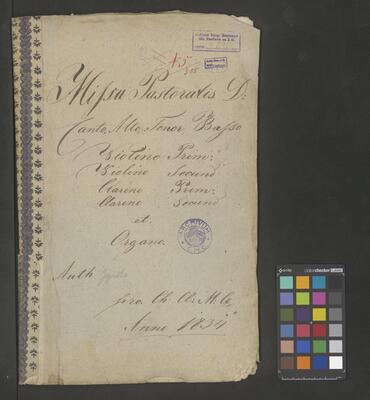 N 5
305
Missa Pastoralis D:
Canto, Alto, Tenor, Basso
Violino Prim:
Violino Secund
Clareno Prim:
Clareno Secund
et.
Organo.
Auth
pro Ch. Cl: M. C.
Anno 1834